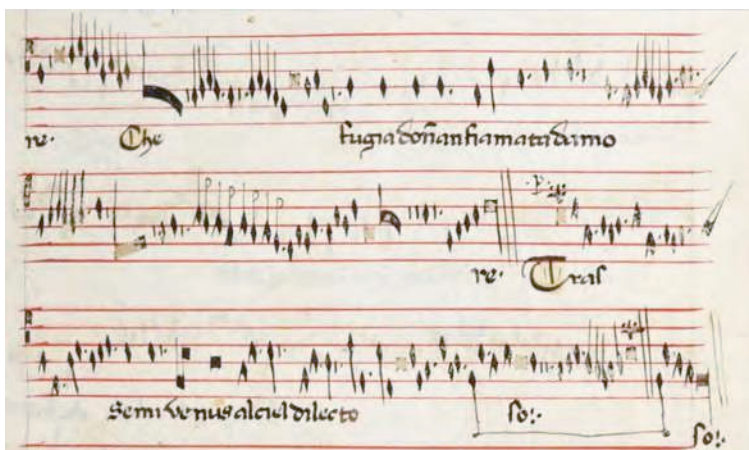 re. Che fugia don̄a nfiamata damo
re. Tras
semi venus al ciel dilecto so:. so:.